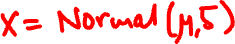 x = Normal(μ, 5)